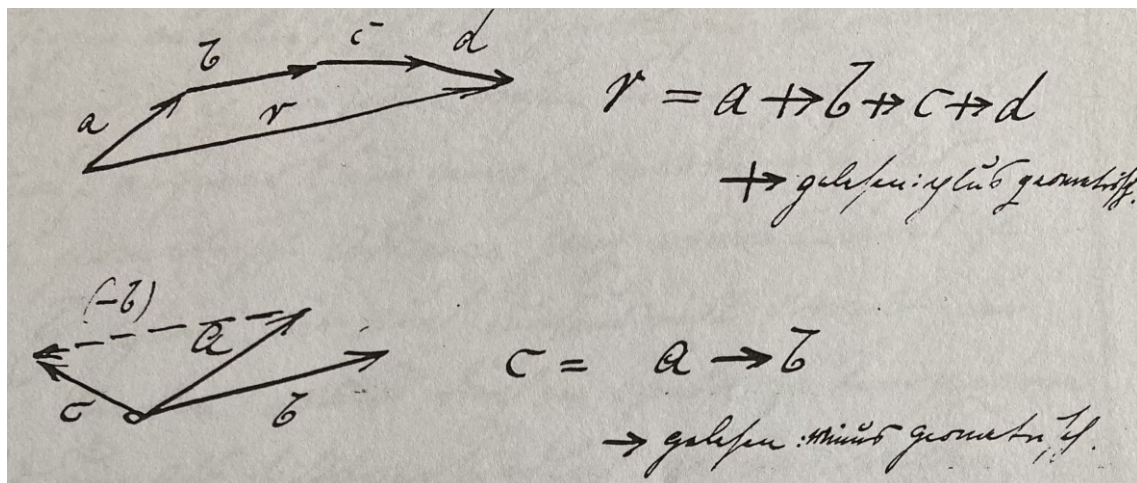 a b c d r
r = a +> b +> c +> d
+> gelesen: plus geometrisch.
(-b) a c b
c = a -> b
-> gelesen: minus geometrisch.